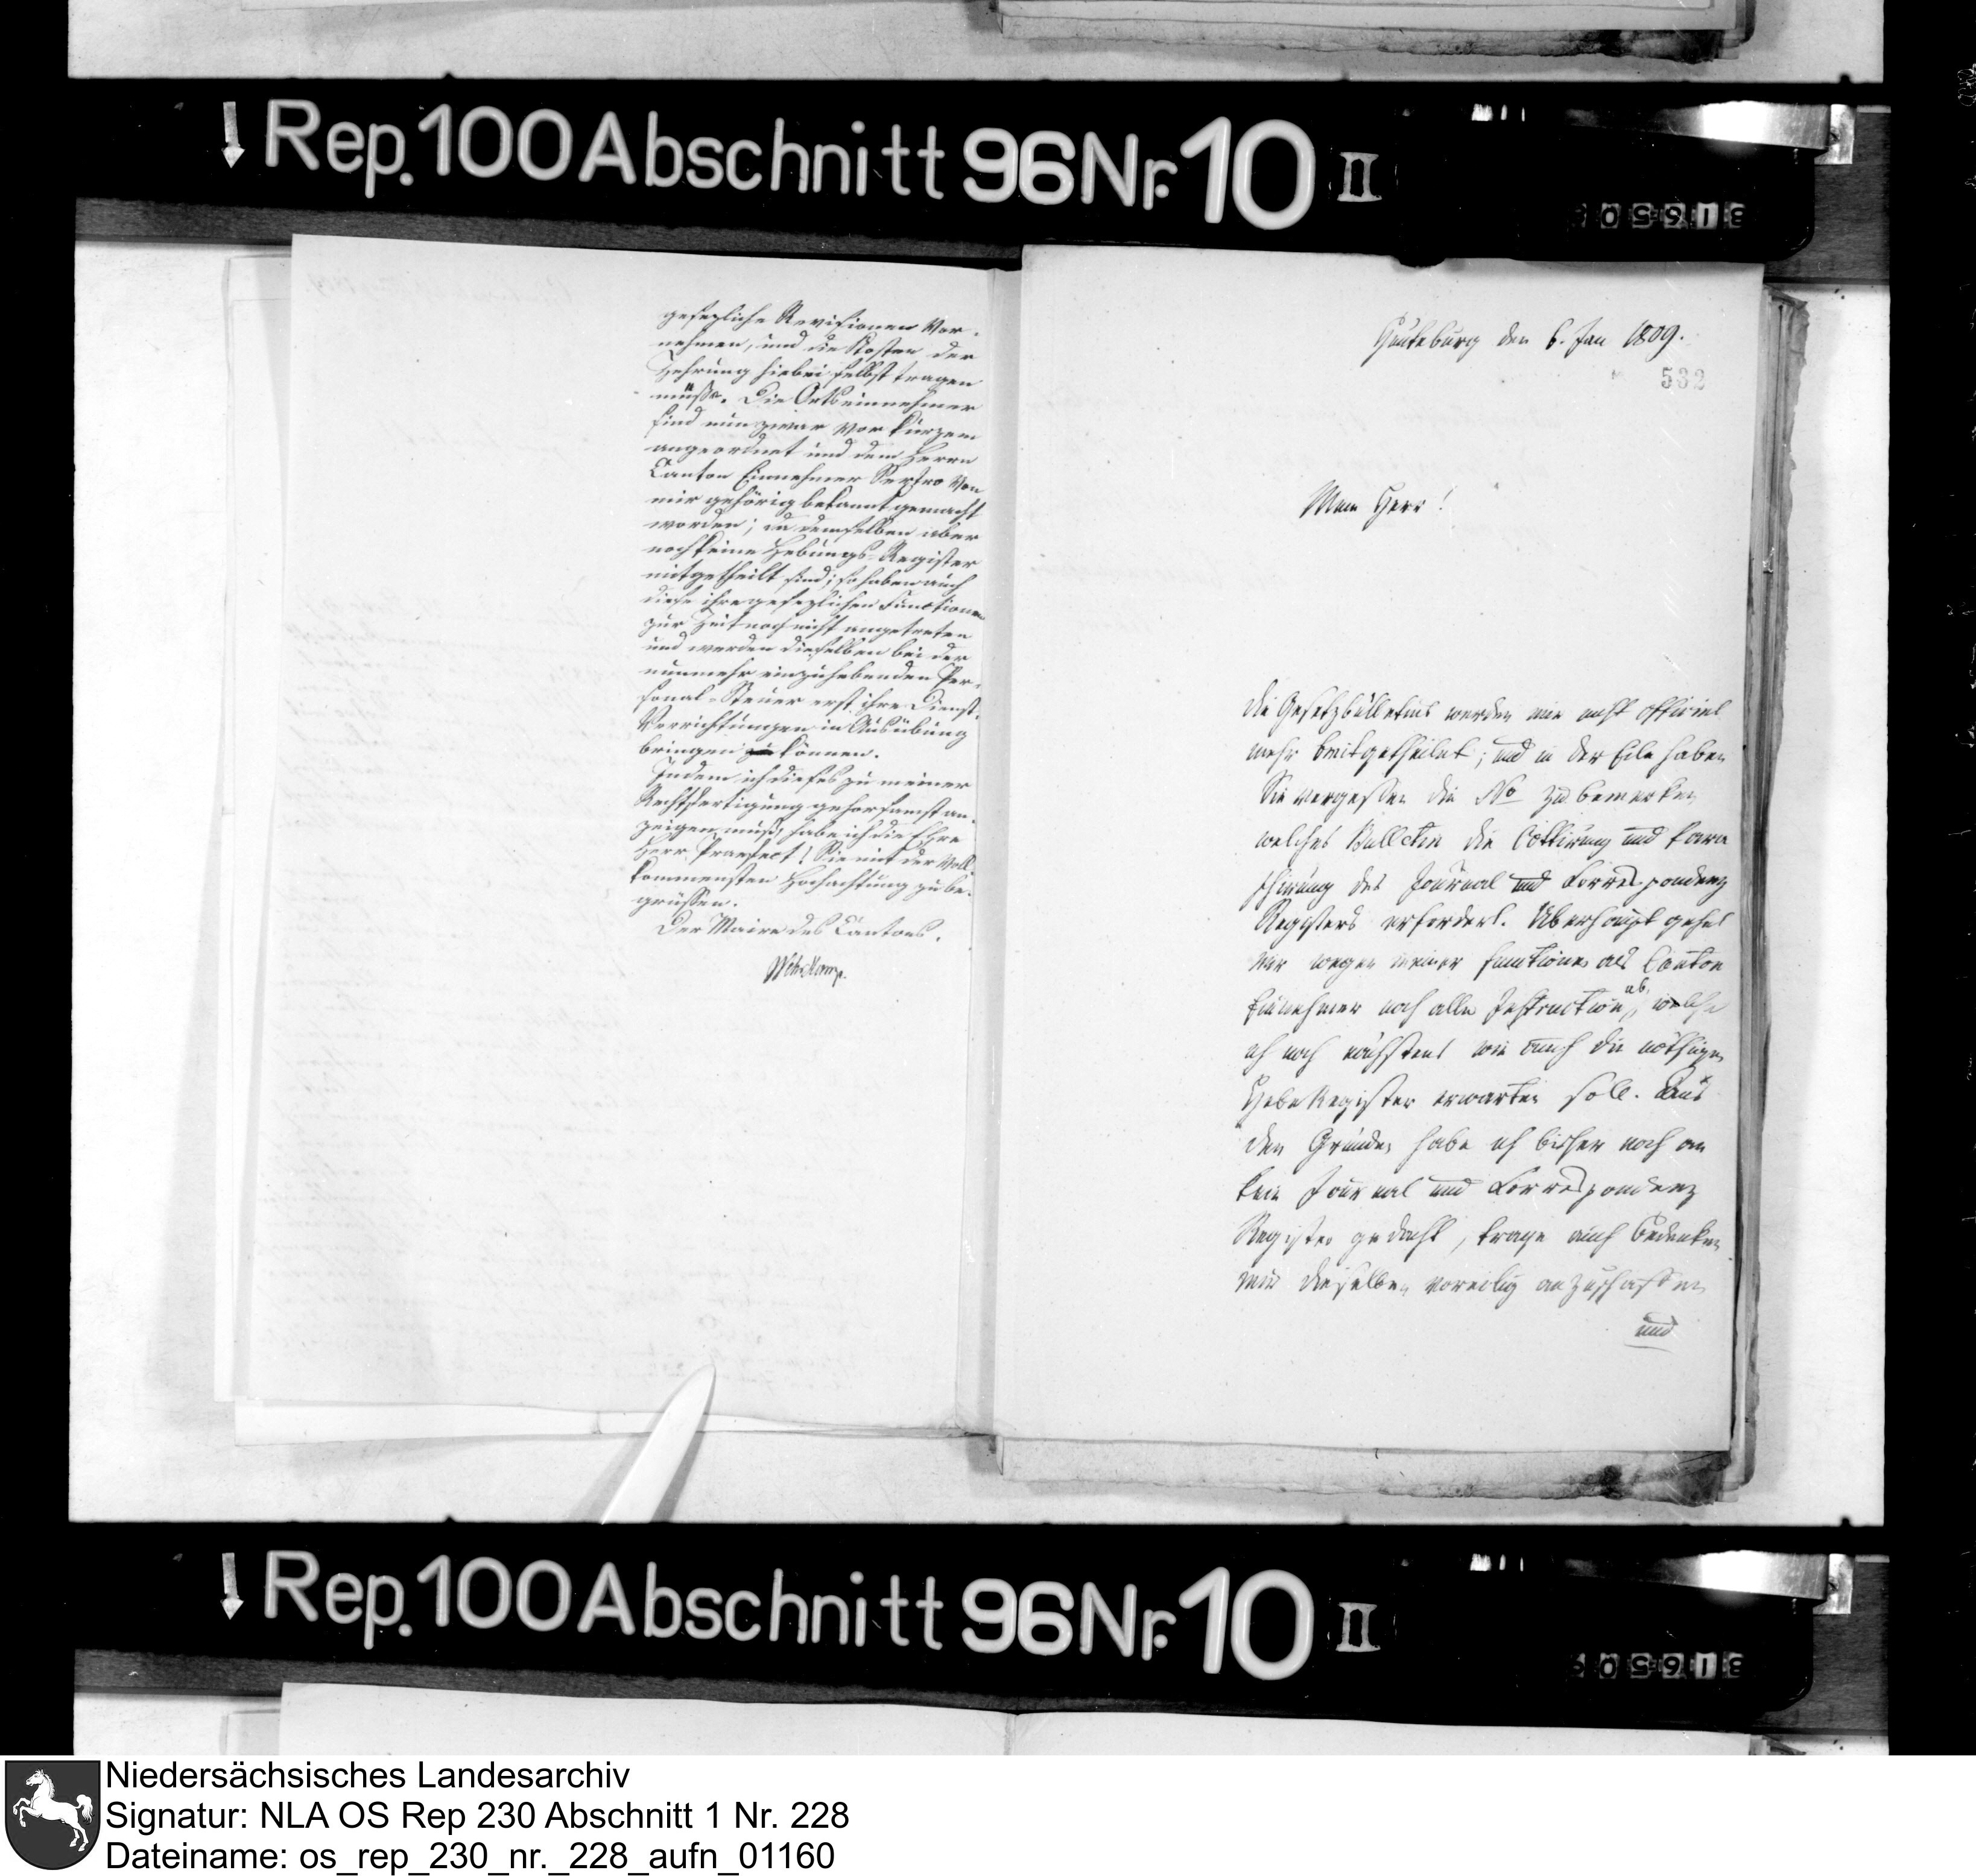 Rep. 100 Abschnitt 96 Nr. 10 II
31650
gesezliche Revisionen vor-
nehmen, und die Kosten der
Zehrung hiebei selbst tragen
müße. Die Ortseinnehmer
sind nun zwar vor kurzem
angeordnet und dem Herrn
Canton Einnehmer von
mir gehörig bekannt gemacht
worden; da demselben aber
noch keine Hebungs-Register
mitgetheilt sind; so haben auch
diese ihre gesezlichen Functionen
zur Zeit noch nicht angetreten
und werden dieselben bei der
nunmehr einzuhebenden Per-
sonal-Steuer erst ihre Dienst-
Verrichtungen in Ausübung
bringen zu können.
Indem ich dieses zu meiner
Rechtfertigung gehorsamst an-
zeigen muß, habe ich die Ehre
Herr Praefect! Sie mit der voll-
kommensten Hochachtung zu be-
grüssen.
Der Maire des Cantons.
den 6. Jan 1809.
532
Mein Herr!
Die Gesetzbülletins werden mir nicht officiel
mehr mitgetheilet; und in der Eile haben
Sie vergessen die No zu bemerken
welches Bulletin die Cottirung und Para
phirung des Journal und Correspondenz
Registers erfordert. Überhaupt gehet
mir wegen meiner Functionen als Canton
Einnehmer noch alle Instruction ab, welche
ich noch nächstens wie auch die nöthigen
HebeRegister erwarten soll. Aus
den Gründen habe ich bisher noch an
kein Journal und Correspondenz
Register gedacht, trage auch Bedenken
mir dieselben voreilig anzuschaffen
und
Rep. 100 Abschnitt 96 Nr. 10 II
31650
Niedersächsisches Landesarchiv
Signatur: NLA OS Rep 230 Abschnitt 1 Nr. 228
Dateiname: os_rep_230_nr._228_aufn_01160